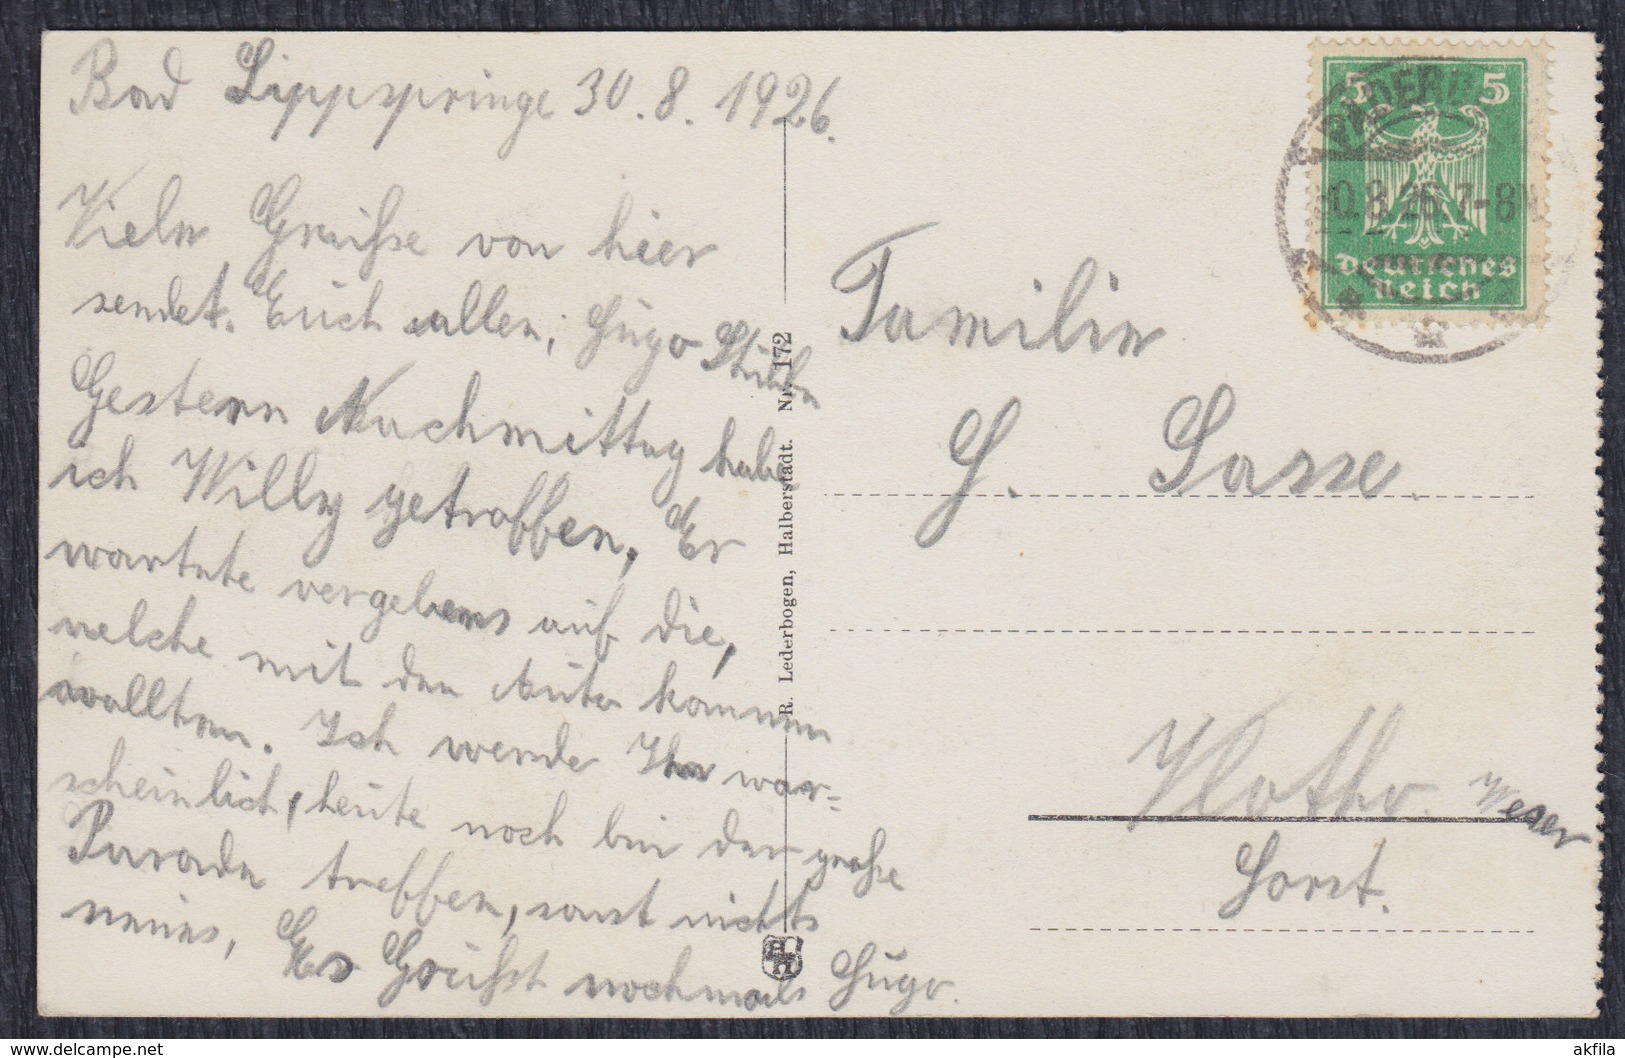 Bad Lippspringe 30.8.1926.
Vieln Grüße von hier
sendet. Euch allen, Hugo
Gestern Nachmittag habe
ich Willy getroffen, Er
wartete vergebens auf die,
welche mit den Auto kommen
wollten. Ich werde Ihn war-
scheinlich, heute noch bei der große
Parade treffen, sonst nichts
neues, Es Grüßt nochmals Hugo.
R. Lederbogen, Halberstadt. Nr. 172
5 5
Deutsches
Reich
PADERB
0.8.26.7-8N
Familie
H. Sasse.
Weser
Horst.
akfila
www.delcampe.net